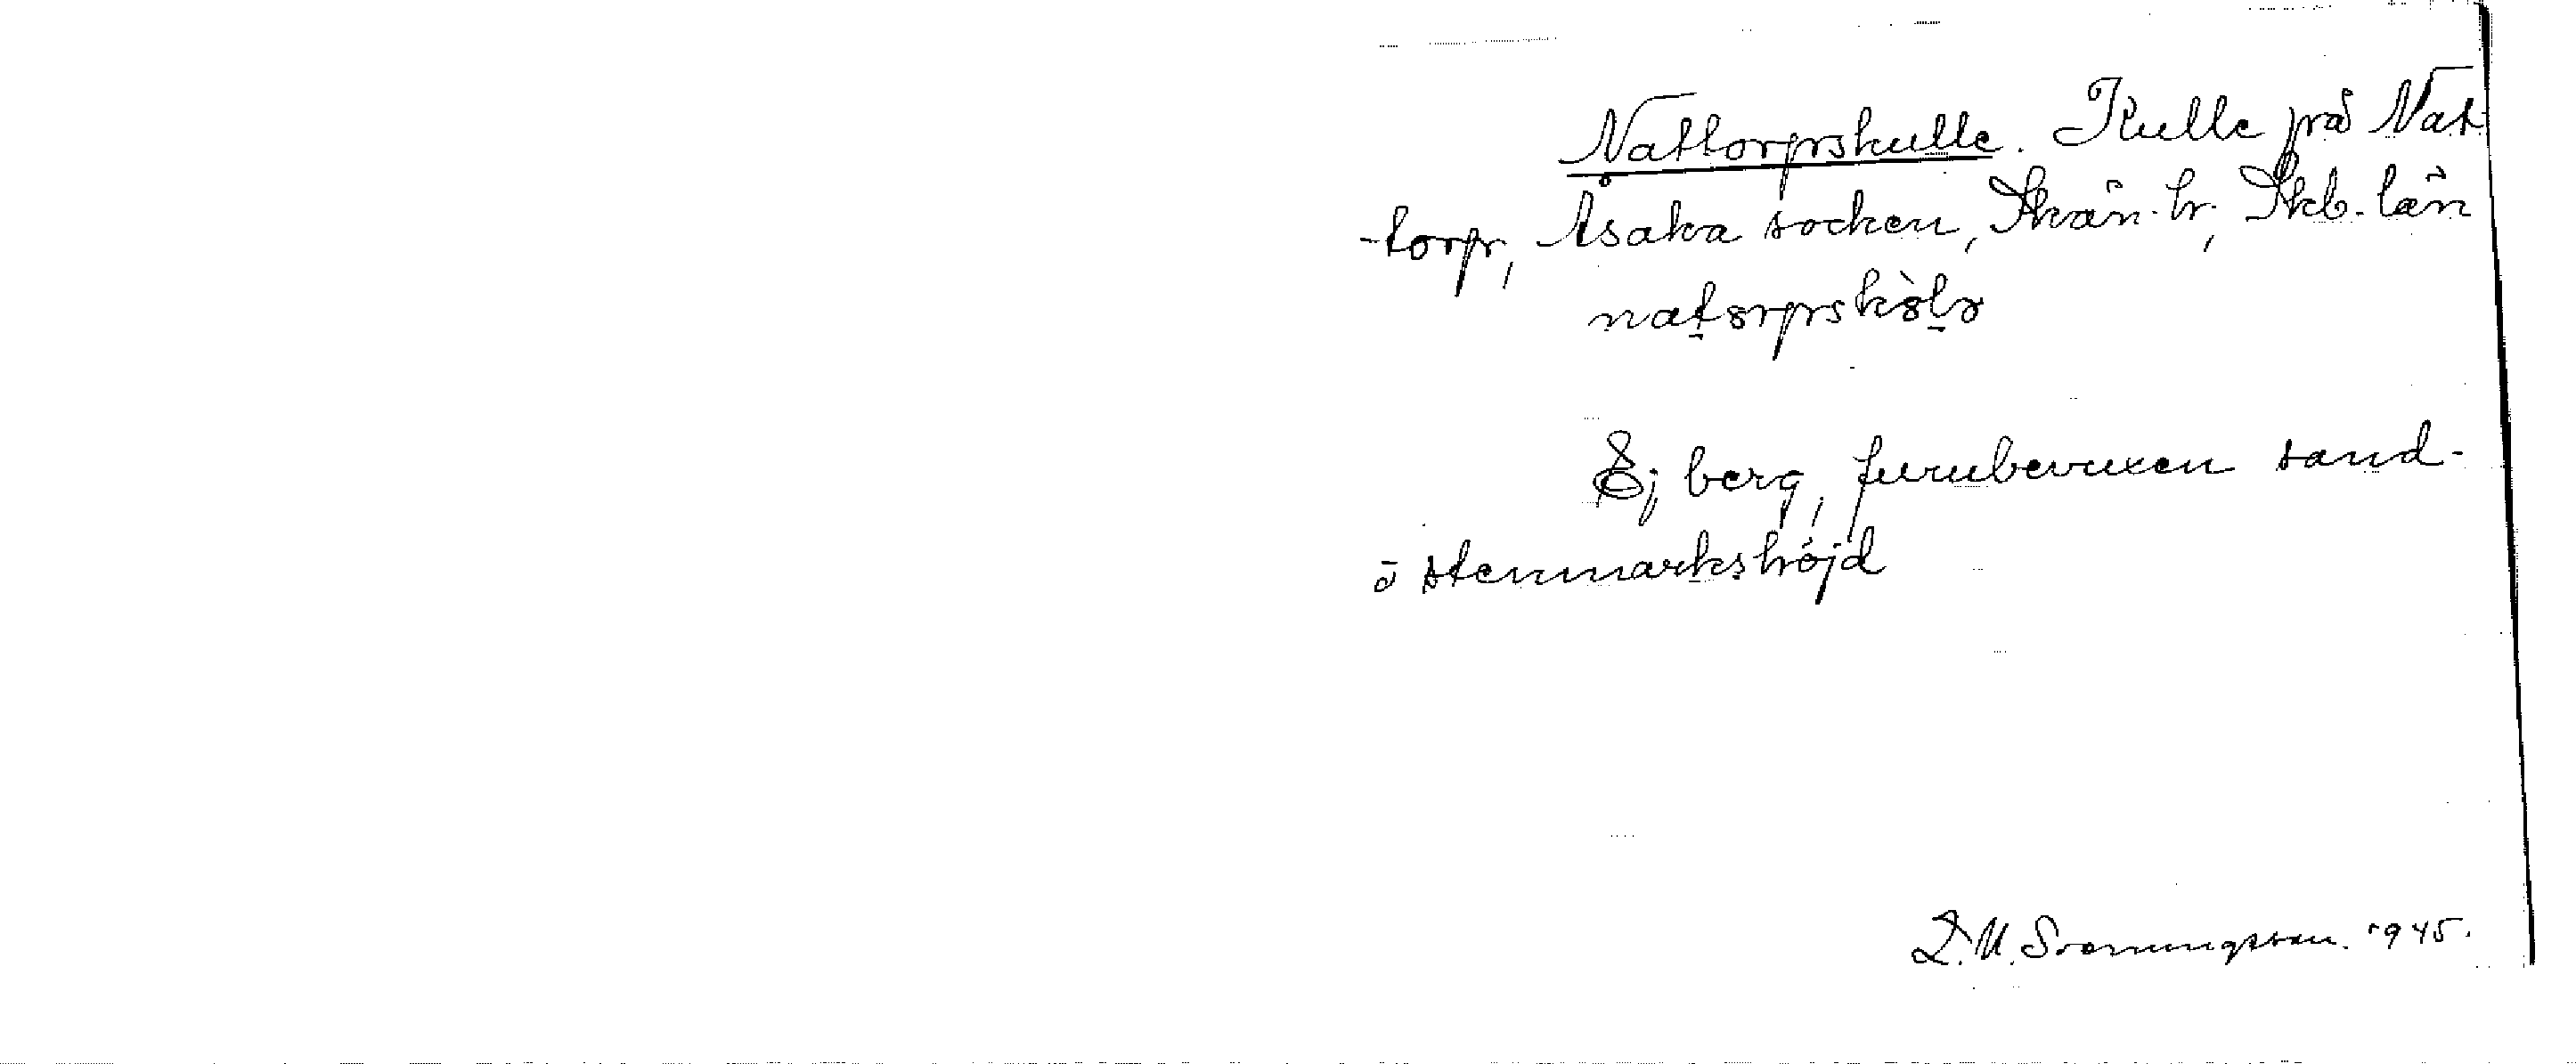 Nattorpskulle. Kulle på Nat
-torp, Åsaka socken, Skån. hr, Skb. län
Ej berg, furubevuxen sand-
o stenmarkshöjd
D. U. Svenningsson. 1945.